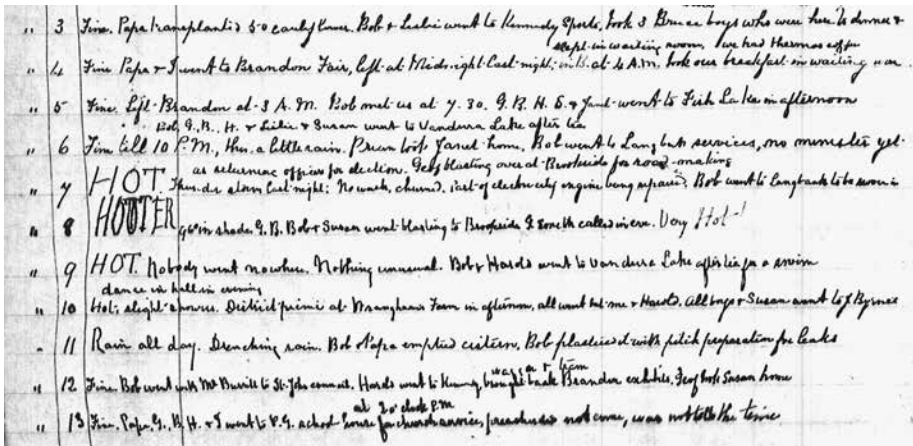 " 3 Fine. Papa transplanted 50 early trees. Bob & Leslie went to Kennedy Sports, took 3 Bruce boys who were here to dinner &
slept in waiting room, & we had thermos coffee
" 4 Fine Papa & I went to Brandon Fair, left at Midnight last night, in B. at 4 A.M. Took our breakfast in waiting room
" 5 Fine. Left Brandon at 3 A.M. Bob met us at 7.30. G. B. H. S. & Janet went to Fish Lake in afternoon
Bob, G., B., H. & Leslie & Susan went to Vandura Lake after tea
" 6 Fine till 10 P.M., then a little rain. took Janet home. Bob went to Langbank services, no minister yet
as returning officer for election. Geof blasting over at Brookside for road-making
" 7 HOT. Thunder storm last night. No wash, churned. Part of electricity engine being repaired. Bob went to Langbank to be sworn in
" 8 HOTTER 96° in shade. G. B. Bob & Susan went blasting to Brookside. G. called in eve. Very Hot!
" 9 HOT. Nobody went nowhere. Nothing unusual. Bob & Harold went to Vandura Lake after tea for a swim
dance in hall in evening
" 10 Hot, slight shower. District picnic at Farm in afternoon, all went but me & Harold. All boys & Susan went to J. Byrnes
" 11 Rain all day. Drenching rain. Bob & Papa emptied cistern. Bob plastered it with pitch preparation for leaks
wagon & team
" 12 Fine. Bob went with Mr to St. John council. Harold went to Kennedy, brought back Brandon exhibits. Geof took Susan home
at 2 o'clock P.M.
" 13 Fine. Papa, G., B. H. & I went to P.G. school house for church service, preacher did not come, was not told the time